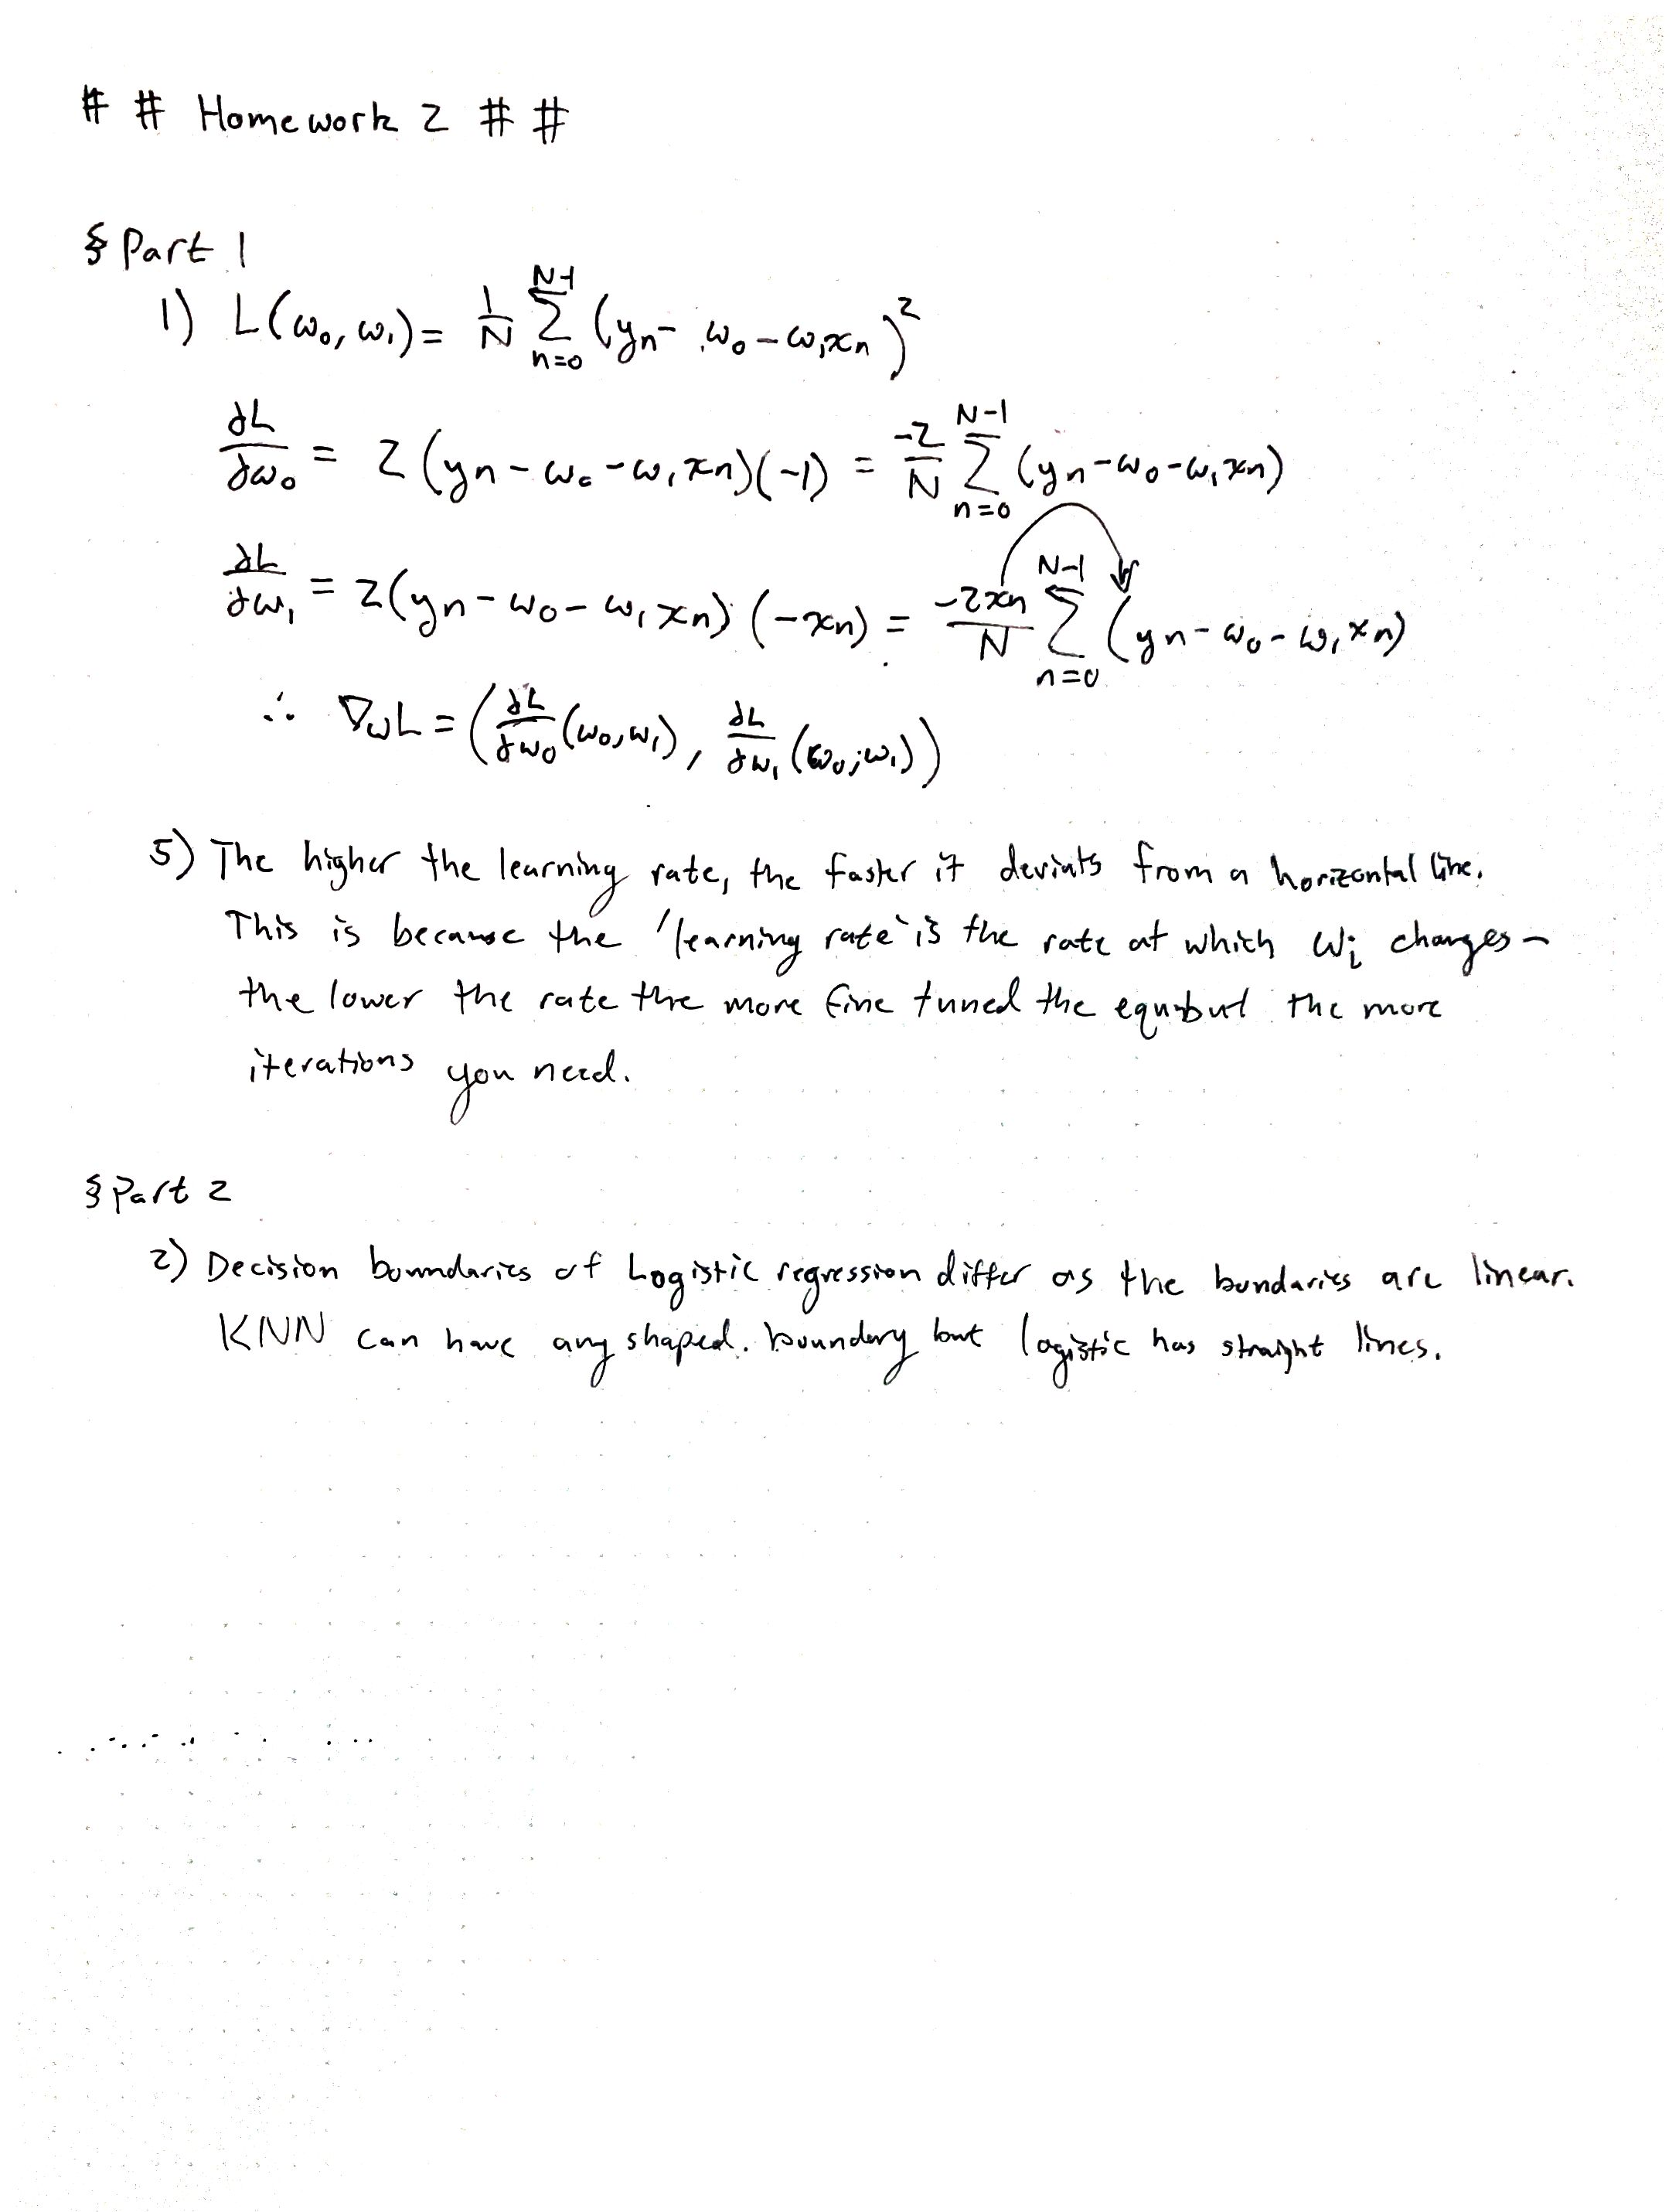 # # Homework 2 # #
§ Part 1
1) L(ω₀, ω₁) = 1/N ∑_{n=0}^{N-1} (yn - ω₀ - ω₁xn)²
∂L/∂ω₀ = 2(yn - ω₀ - ω₁xn)(-1) = -2/N ∑_{n=0}^{N-1} (yn - ω₀ - ω₁xn)
∂L/∂ω₁ = 2(yn - ω₀ - ω₁xn)(-xn) = -2xn/N ∑_{n=0}^{N-1} (yn - ω₀ - ω₁xn)
∴ ∇ωL = (∂L/∂ω₀(ω₀, ω₁), ∂L/∂ω₁(ω₀, ω₁))
5) The higher the learning rate, the faster it deviats from a horizontal line.
This is because the 'learning rate' is the rate at which ωi changes –
the lower the rate the more fine tunned the but the more
iterations you need.
§ Part 2
2) Decision boundaries of Logistic regression differ as the bundaries are linear.
KNN can have any shaped boundary but logistic has straight lines.